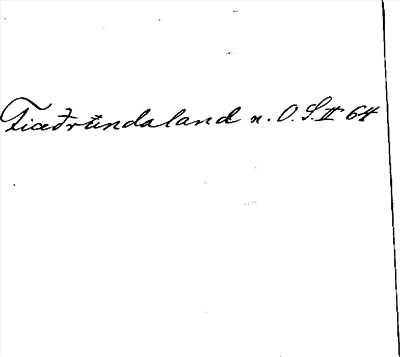 Tiæðrundaland n. O.S. II 64